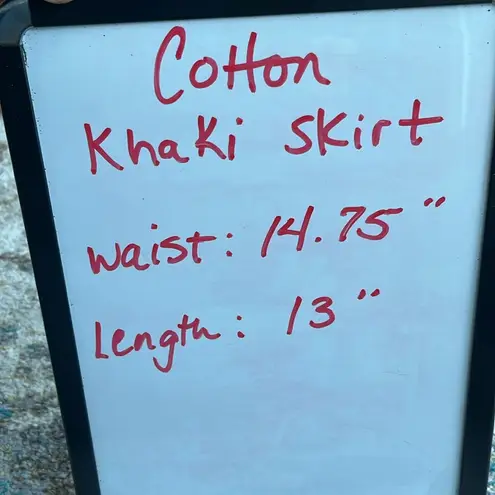 Cotton
Khaki Skirt
waist: 14.75"
Length: 13"